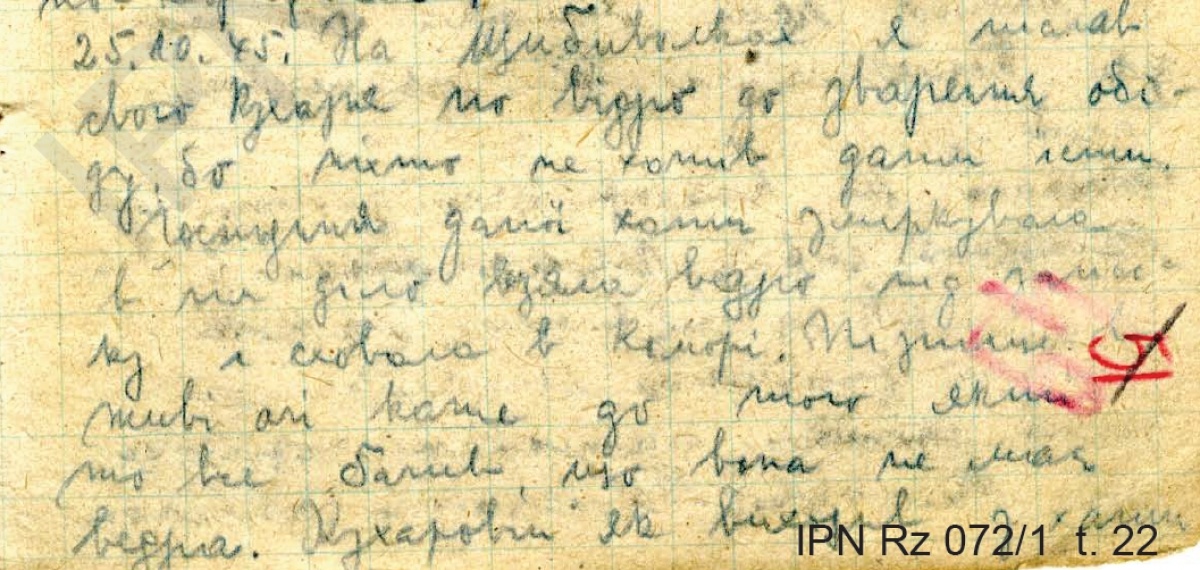 25.10.45. На Щибиволках я послав
свого кухаря по відро до зварення обі-
ду, бо ніхто не хотів дати їсти.
Господиня даної хати зміркувала
в чім діло взяла ведро під
ку і сховала в коморі. Пізніше в
живі очі каже до того який
то все бачив, що вона не має
ведра. Кухаровій як виходив з хати
IPN Rz 072/1 t. 22